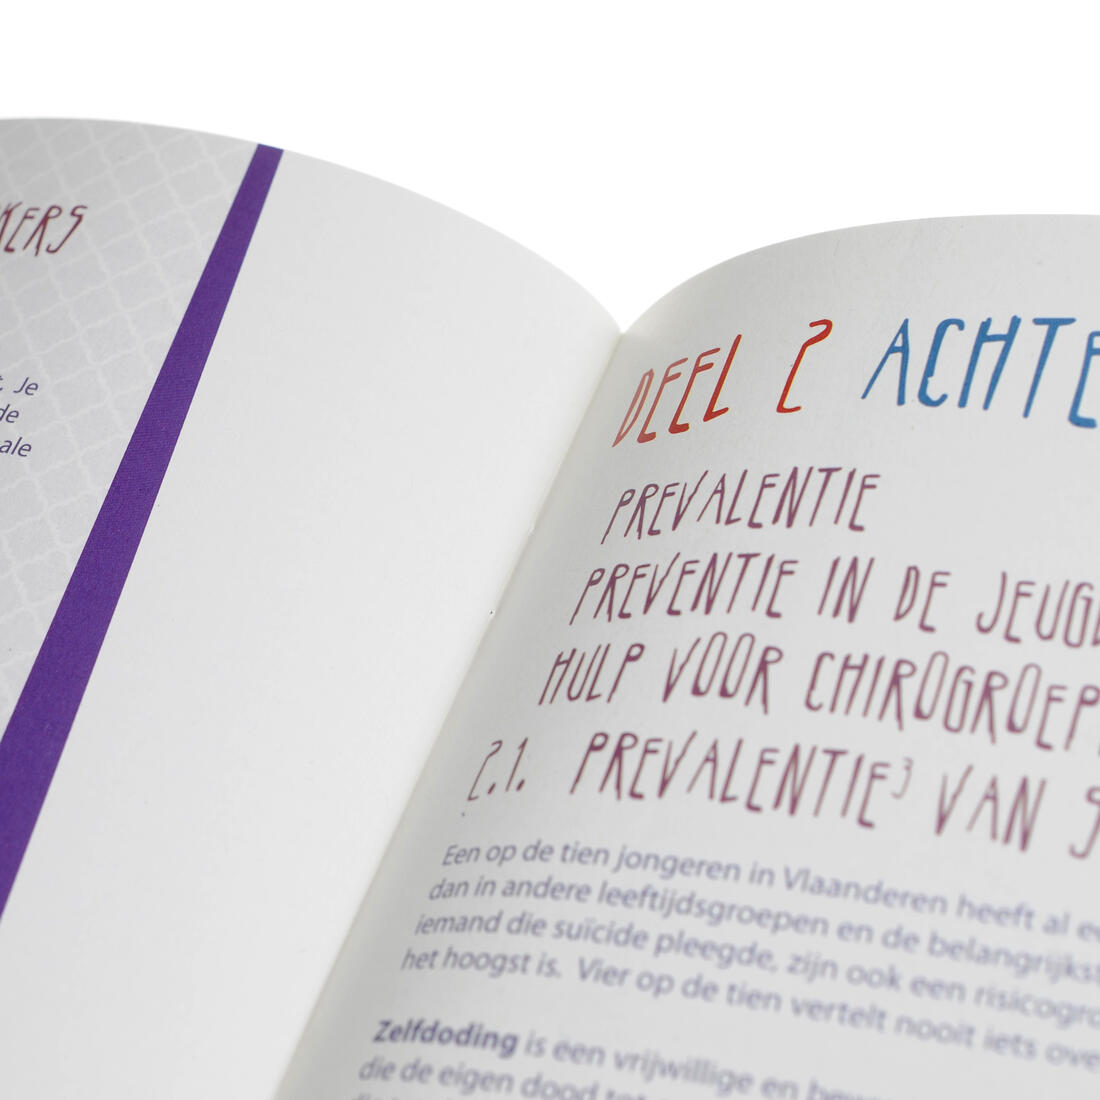 KERS
Je
de
ale
DEEL 2 ACHTE
PREVALENTIE
PREVENTIE IN DE JEUGD
HULP VOOR CHIROGROEP
2.1. PREVALENTIE³ VAN
Een op de tien jongeren in Vlaanderen heeft al ee
dan in andere leeftijdsgroepen en de belangrijkst
iemand die suïcide pleegde, zijn ook een risicogro
het hoogst is. Vier op de tien vertelt nooit iets ove
Zelfdoding is een vrijwillige en bew
die de eigen dood tot